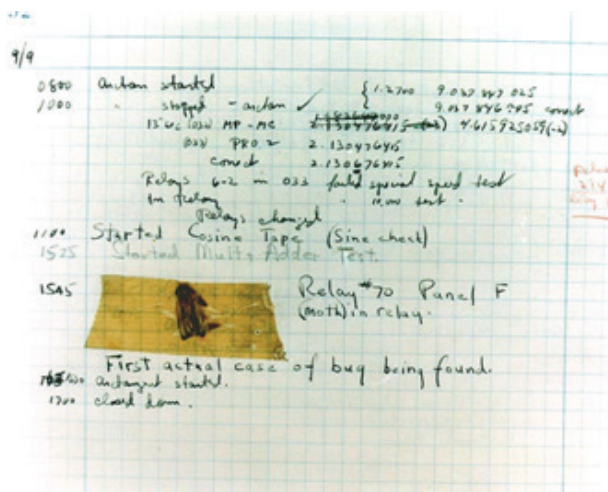 9/9
0800 Antan started { 1.2700 9.037 847 025
1000 " stopped - antan ✓ 9.037 846 995 correct
13"UC (032) MP - MC 2.130476415 (-3) 4.615925059(-2)
(033) PRO 2 2.130476415
correct 2.130676415
Relays 6-2 in 033 failed special speed test
in Relay " 10,000 test .
Relays changed
1100 Started Cosine Tape (Sine check)
1525 Started Multi Adder Test.
1545 Relay #70 Panel F
(moth) in relay.
First actual case of bug being found.
1630 antangent started.
1700 closed down.